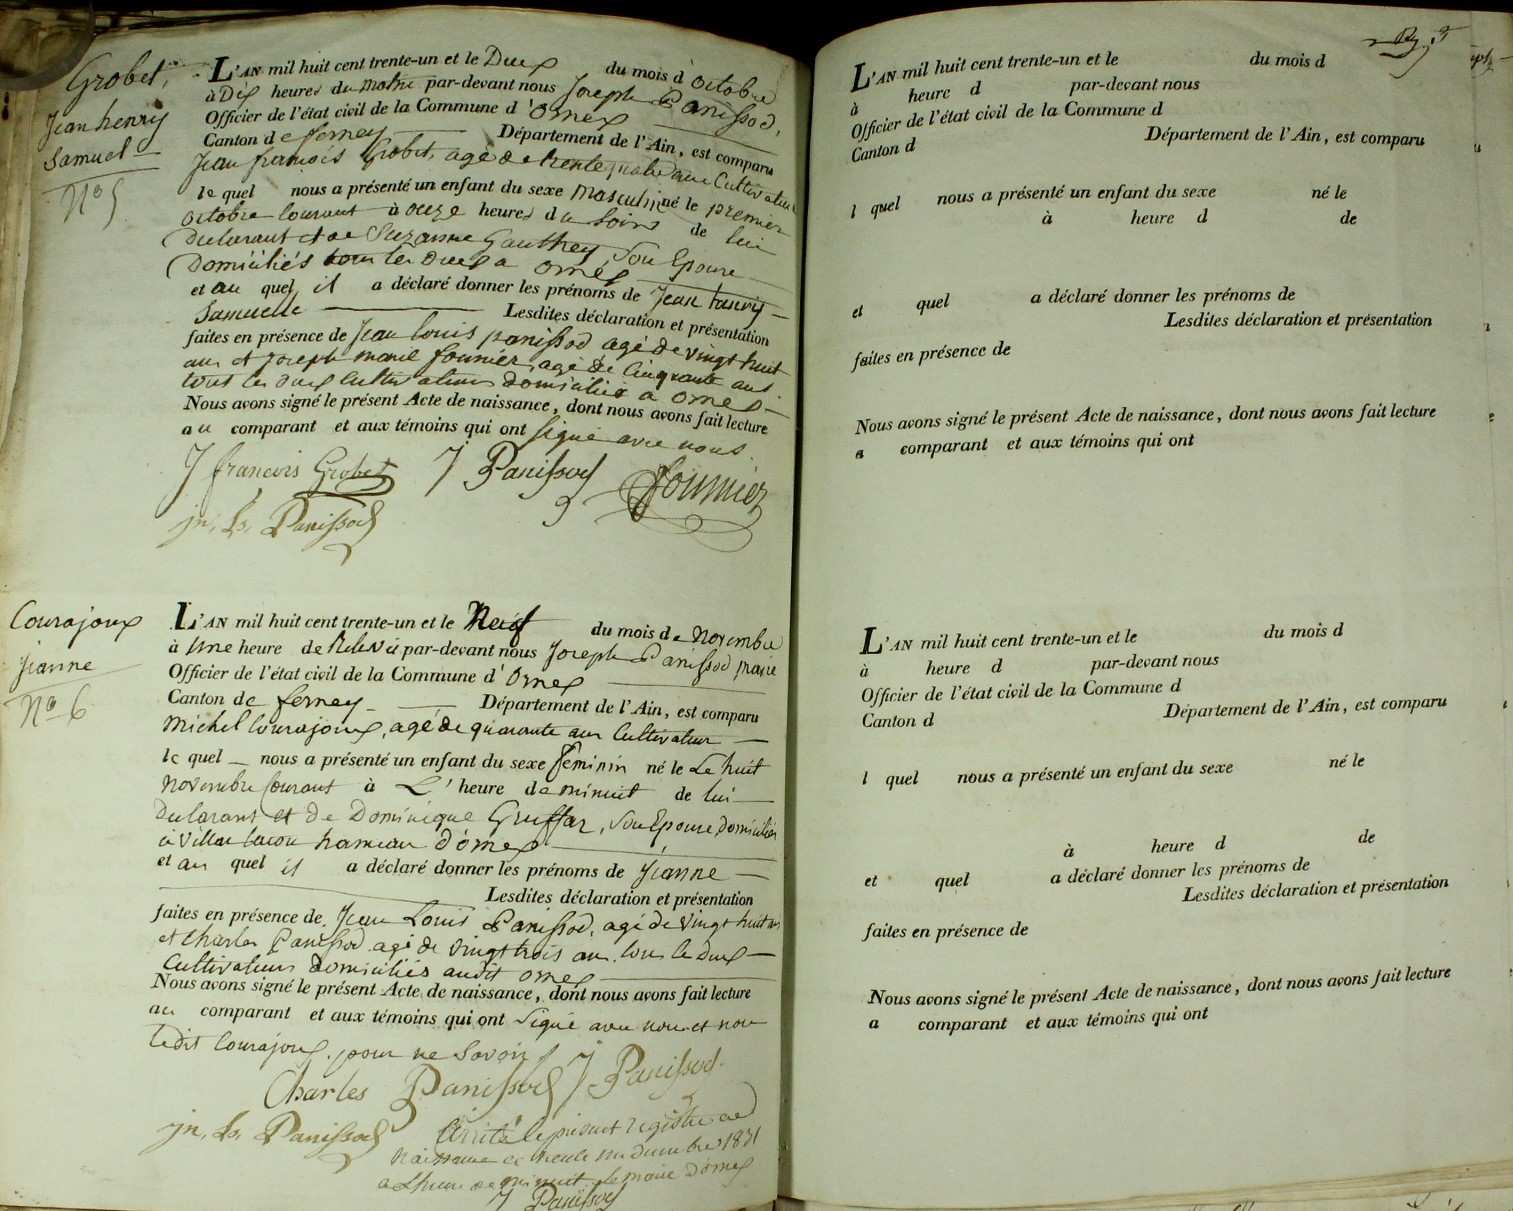 Grobet,
Jean henrÿ
Samuel
N° 5
L'AN mil huit cent trente-un et le Deux du mois d'octobre
à Dix heures du matin par-devant nous Joseph Panissod,
Officier de l'état civil de la Commune d'ornex
Canton de ferney Département de l'Ain, est comparu
Jean francois Grobet, agé de trente quatre ans Cultivateur
lequel nous a présenté un enfant du sexe masculin né le premier
octobre Courant à onze heures du soir de lui
Déclarant et de Suzanne Gauthey, Son Epouse
Domiciliés tous les Deux a ornex
et au quel il a déclaré donner les prénoms de Jean henrÿ
Samuelle Lesdites déclaration et présentation
faites en présence de Jean Louis panissod agé de vingt huit
ans et Joseph marie fournier, agé de Cinquante ans
tous les deux Cultivateurs domiciliés a ornex
Nous avons signé le présent Acte de naissance, dont nous avons fait lecture
au comparant et aux témoins qui ont Signé avec nous.
J francois Grobet J Panissod fournier
jn. Ls. Panissod
Courajoux
Jeanne
N° 6
L'AN mil huit cent trente-un et le Neuf du mois de novembre
à Une heure de Relevée par-devant nous Joseph Panissod maire
Officier de l'état civil de la Commune d'ornex
Canton de ferney Département de l'Ain, est comparu
Michel Courajoux, agé de quarante ans Cultivateur
lequel nous a présenté un enfant du sexe féminin né le Le huit
novembre Courant à L'heure de minuit de lui
Déclarant et de Dominique Gruffaz, Son Epouse domiciliés
à Villar tacon hameau d'ornex
et au quel il a déclaré donner les prénoms de Jeanne
Lesdites déclaration et présentation
faites en présence de Jean Louis Panissod, agé de vingt huit ans
et Charles Panissod agé de vingt trois ans tous le Deux
Cultivateurs domiciliés audit ornex
Nous avons signé le présent Acte de naissance, dont nous avons fait lecture
au comparant et aux témoins qui ont Signé avec nous et non
ledit Courajoux pour ne Savoir
Charles Panissod J Panissod
jn. Ls. Panissod
Arrêté le présent registre de
naissance ce trente un decembre 1831
a L'heure de minuit le maire d'ornex
J Panissod
L'AN mil huit cent trente-un et le du mois d
à heure d par-devant nous
Officier de l'état civil de la Commune d
Canton d Département de l'Ain, est comparu
l quel nous a présenté un enfant du sexe né le
à heure d de
et quel a déclaré donner les prénoms de
Lesdites déclaration et présentation
faites en présence de
Nous avons signé le présent Acte de naissance, dont nous avons fait lecture
a comparant et aux témoins qui ont
L'AN mil huit cent trente-un et le du mois d
à heure d par-devant nous
Officier de l'état civil de la Commune d
Canton d Département de l'Ain, est comparu
l quel nous a présenté un enfant du sexe né le
à heure d de
et quel a déclaré donner les prénoms de
Lesdites déclaration et présentation
faites en présence de
Nous avons signé le présent Acte de naissance, dont nous avons fait lecture
a comparant et aux témoins qui ont